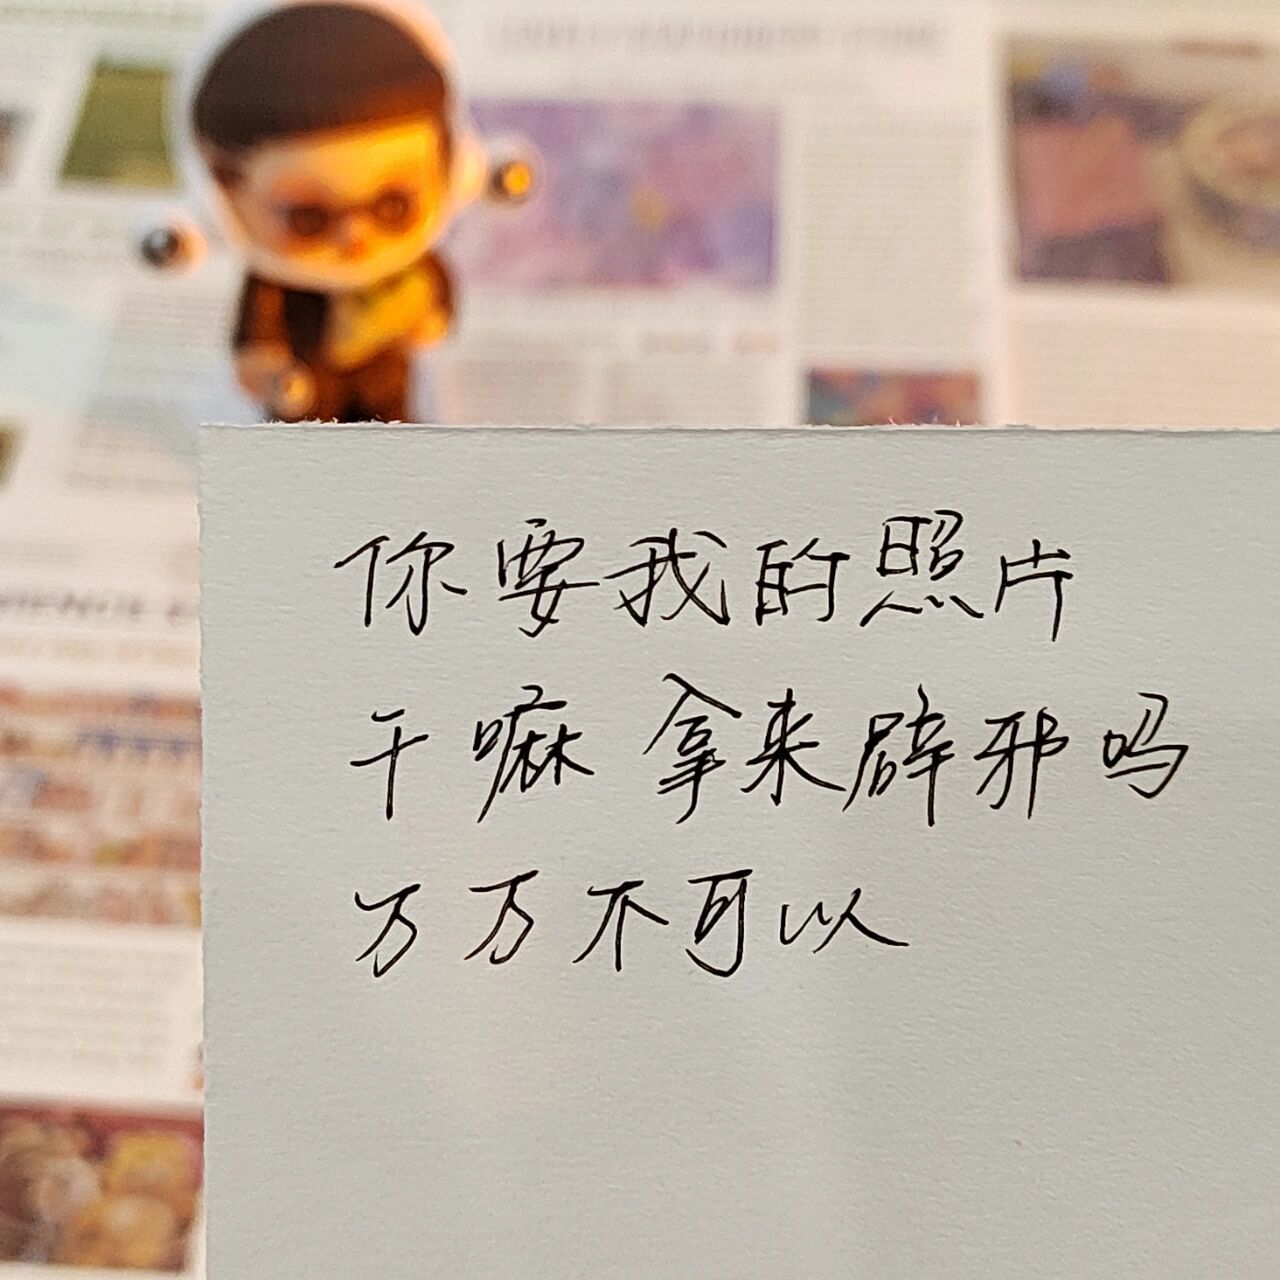 你要我的照片
干嘛 拿来辟邪吗
万万不可以